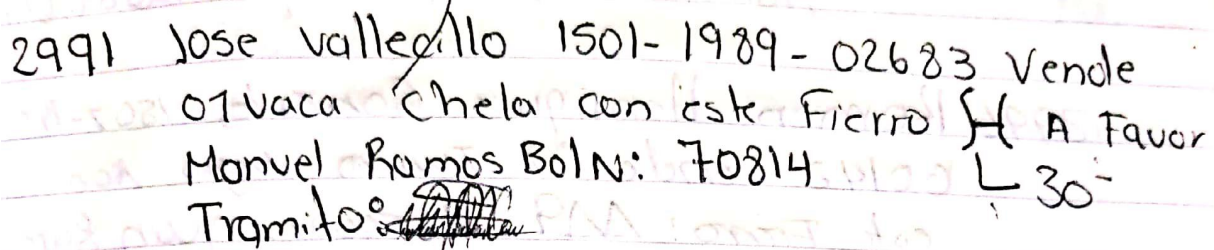 2991 Jose Vallecillo 1501-1989-02683 Vende
01 vaca Chela con este Fierro A Favor
Manuel Ramos Bol N: 70814 L 30-
Tramito: